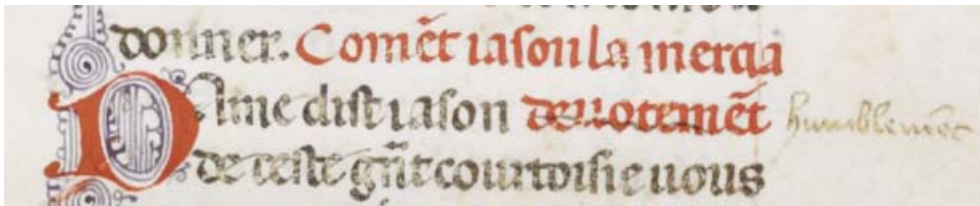 donner. Comēt iason la mercia
Dame dist iason deuotemēt humblemēt
de ceste gr̄t courtoisie uous